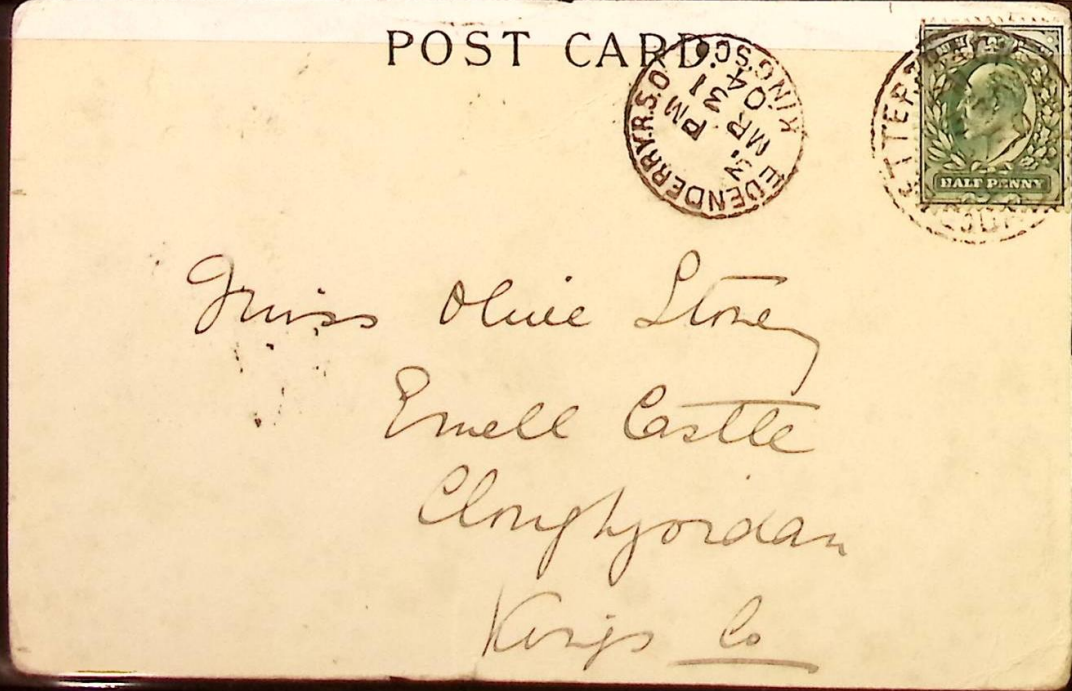 POST CARD
EDENDERRY.R.S.O. KING'S CO.
3. PM
MR 31
04
HALF PENNY
Miss Olive Stoney
Emell Castle
Cloughjordan
Kings Co